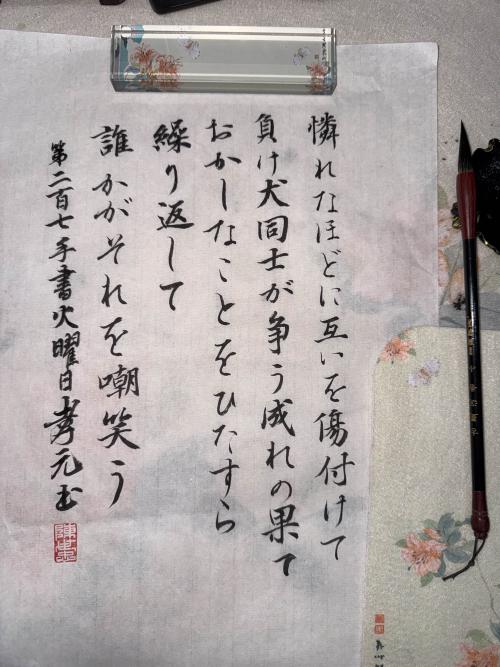 憐れなほどに互いを傷付けて
負け犬同士が争う成れの果て
おかしなことをひたすら
繰り返して
誰かがそれを嘲笑う
第二百七手書火曜日孝元书